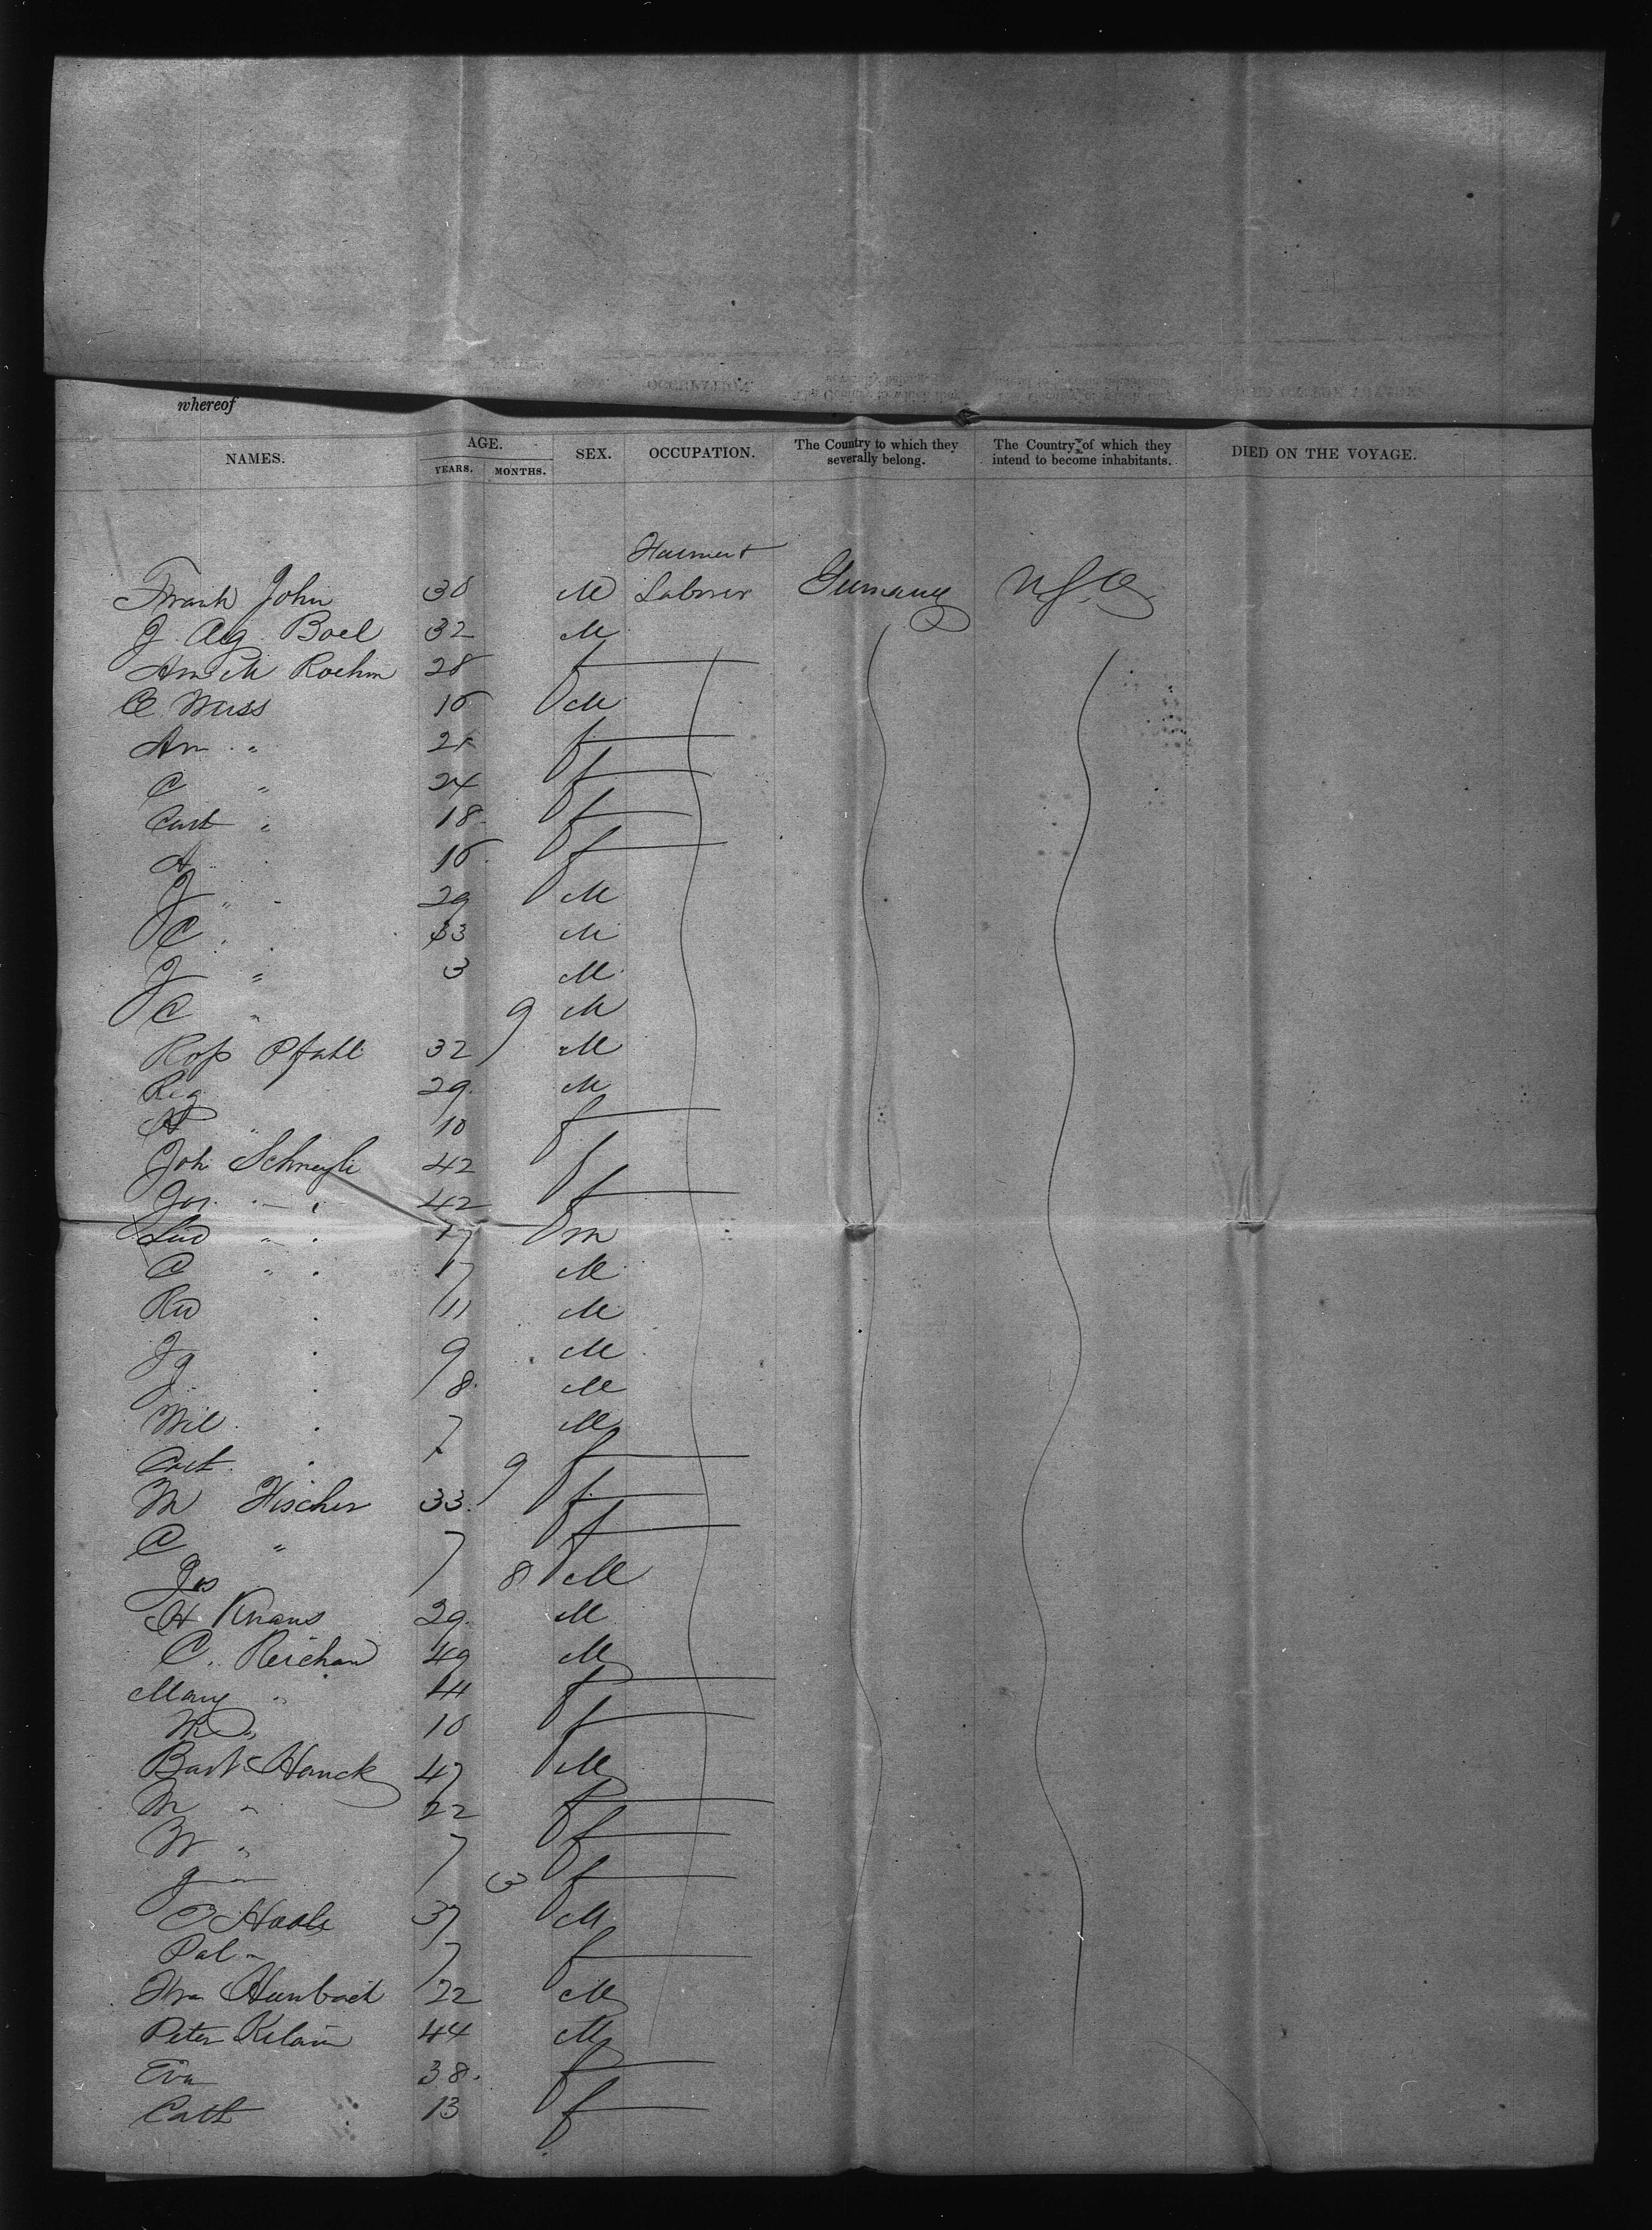 whereof
NAMES. AGE. YEARS. MONTHS. SEX. OCCUPATION. The Country to which they severally belong. The Country of which they intend to become inhabitants. DIED ON THE VOYAGE.
Frank John 30 M Laborer Germany U.S.A.
J. Aug. Boel 32 M
M Roehm 28 f
C Weiss 16 M
An " 21 f
C " 24 f
18 f
A 16 f
J " 29 M
C 33 M
J " 3 M
C " 9 M
Pfahl 32 M
Reg 29 M
A " 10 f
Joh 42
Jos 42 f
Lud " 17 m
C " 17 M
Ru 11 M
Jg 9 M
J 8 M
Wil 7 M
9 f
M Fischer 33 f
C " 7 f
Jos 8 M
H. Knaus 29 M
C. Reichan 49 M
Mary " 44 f
M " 10 f
Bart Hauck 47 M
M " 22 f
W " 7 f
J 3 f
C Haab 37 M
Pal " 7 f
22 M
Peter Kelam 44 M
Eva 38 f
Cath 13 f